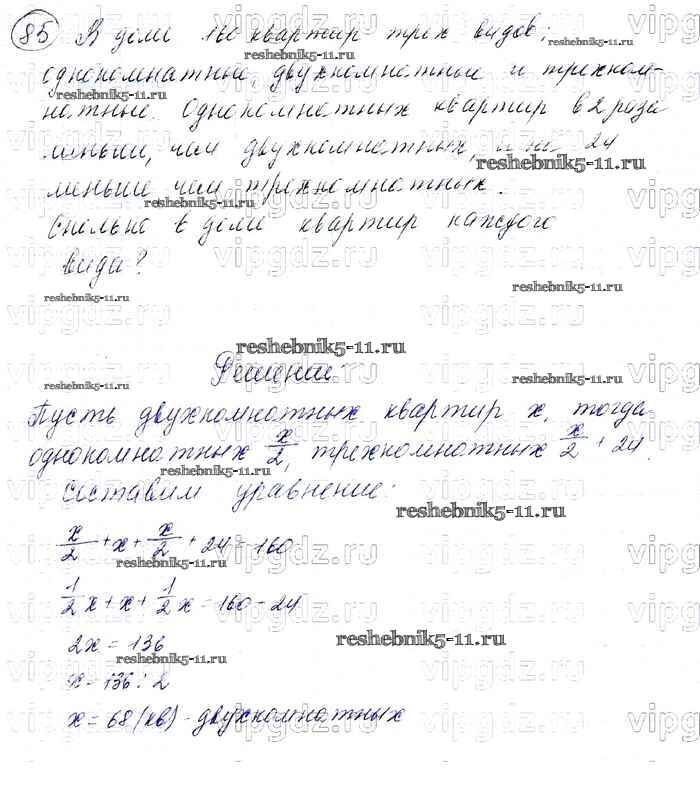 85 В доме 160 квартир трех видов:
однокомнатные, двухкомнатные и трехком-
натные. Однокомнатных квартир в 2 раза
меньше, чем двухкомнатных, и на 24
меньше чем трехкомнатных.
Сколько в доме квартир каждого
вида?
Решение:
Пусть двухкомнатных квартир x, тогда
однокомнатных x/2, трехкомнатных x/2 + 24.
Составим уравнение:
x/2 + x + x/2 + 24 = 160
1/2 x + x + 1/2 x = 160 - 24
2x = 136
x = 136 : 2
x = 68 (кв) - двухкомнатных
reshebnik5-11.ru
vipgdz.ru